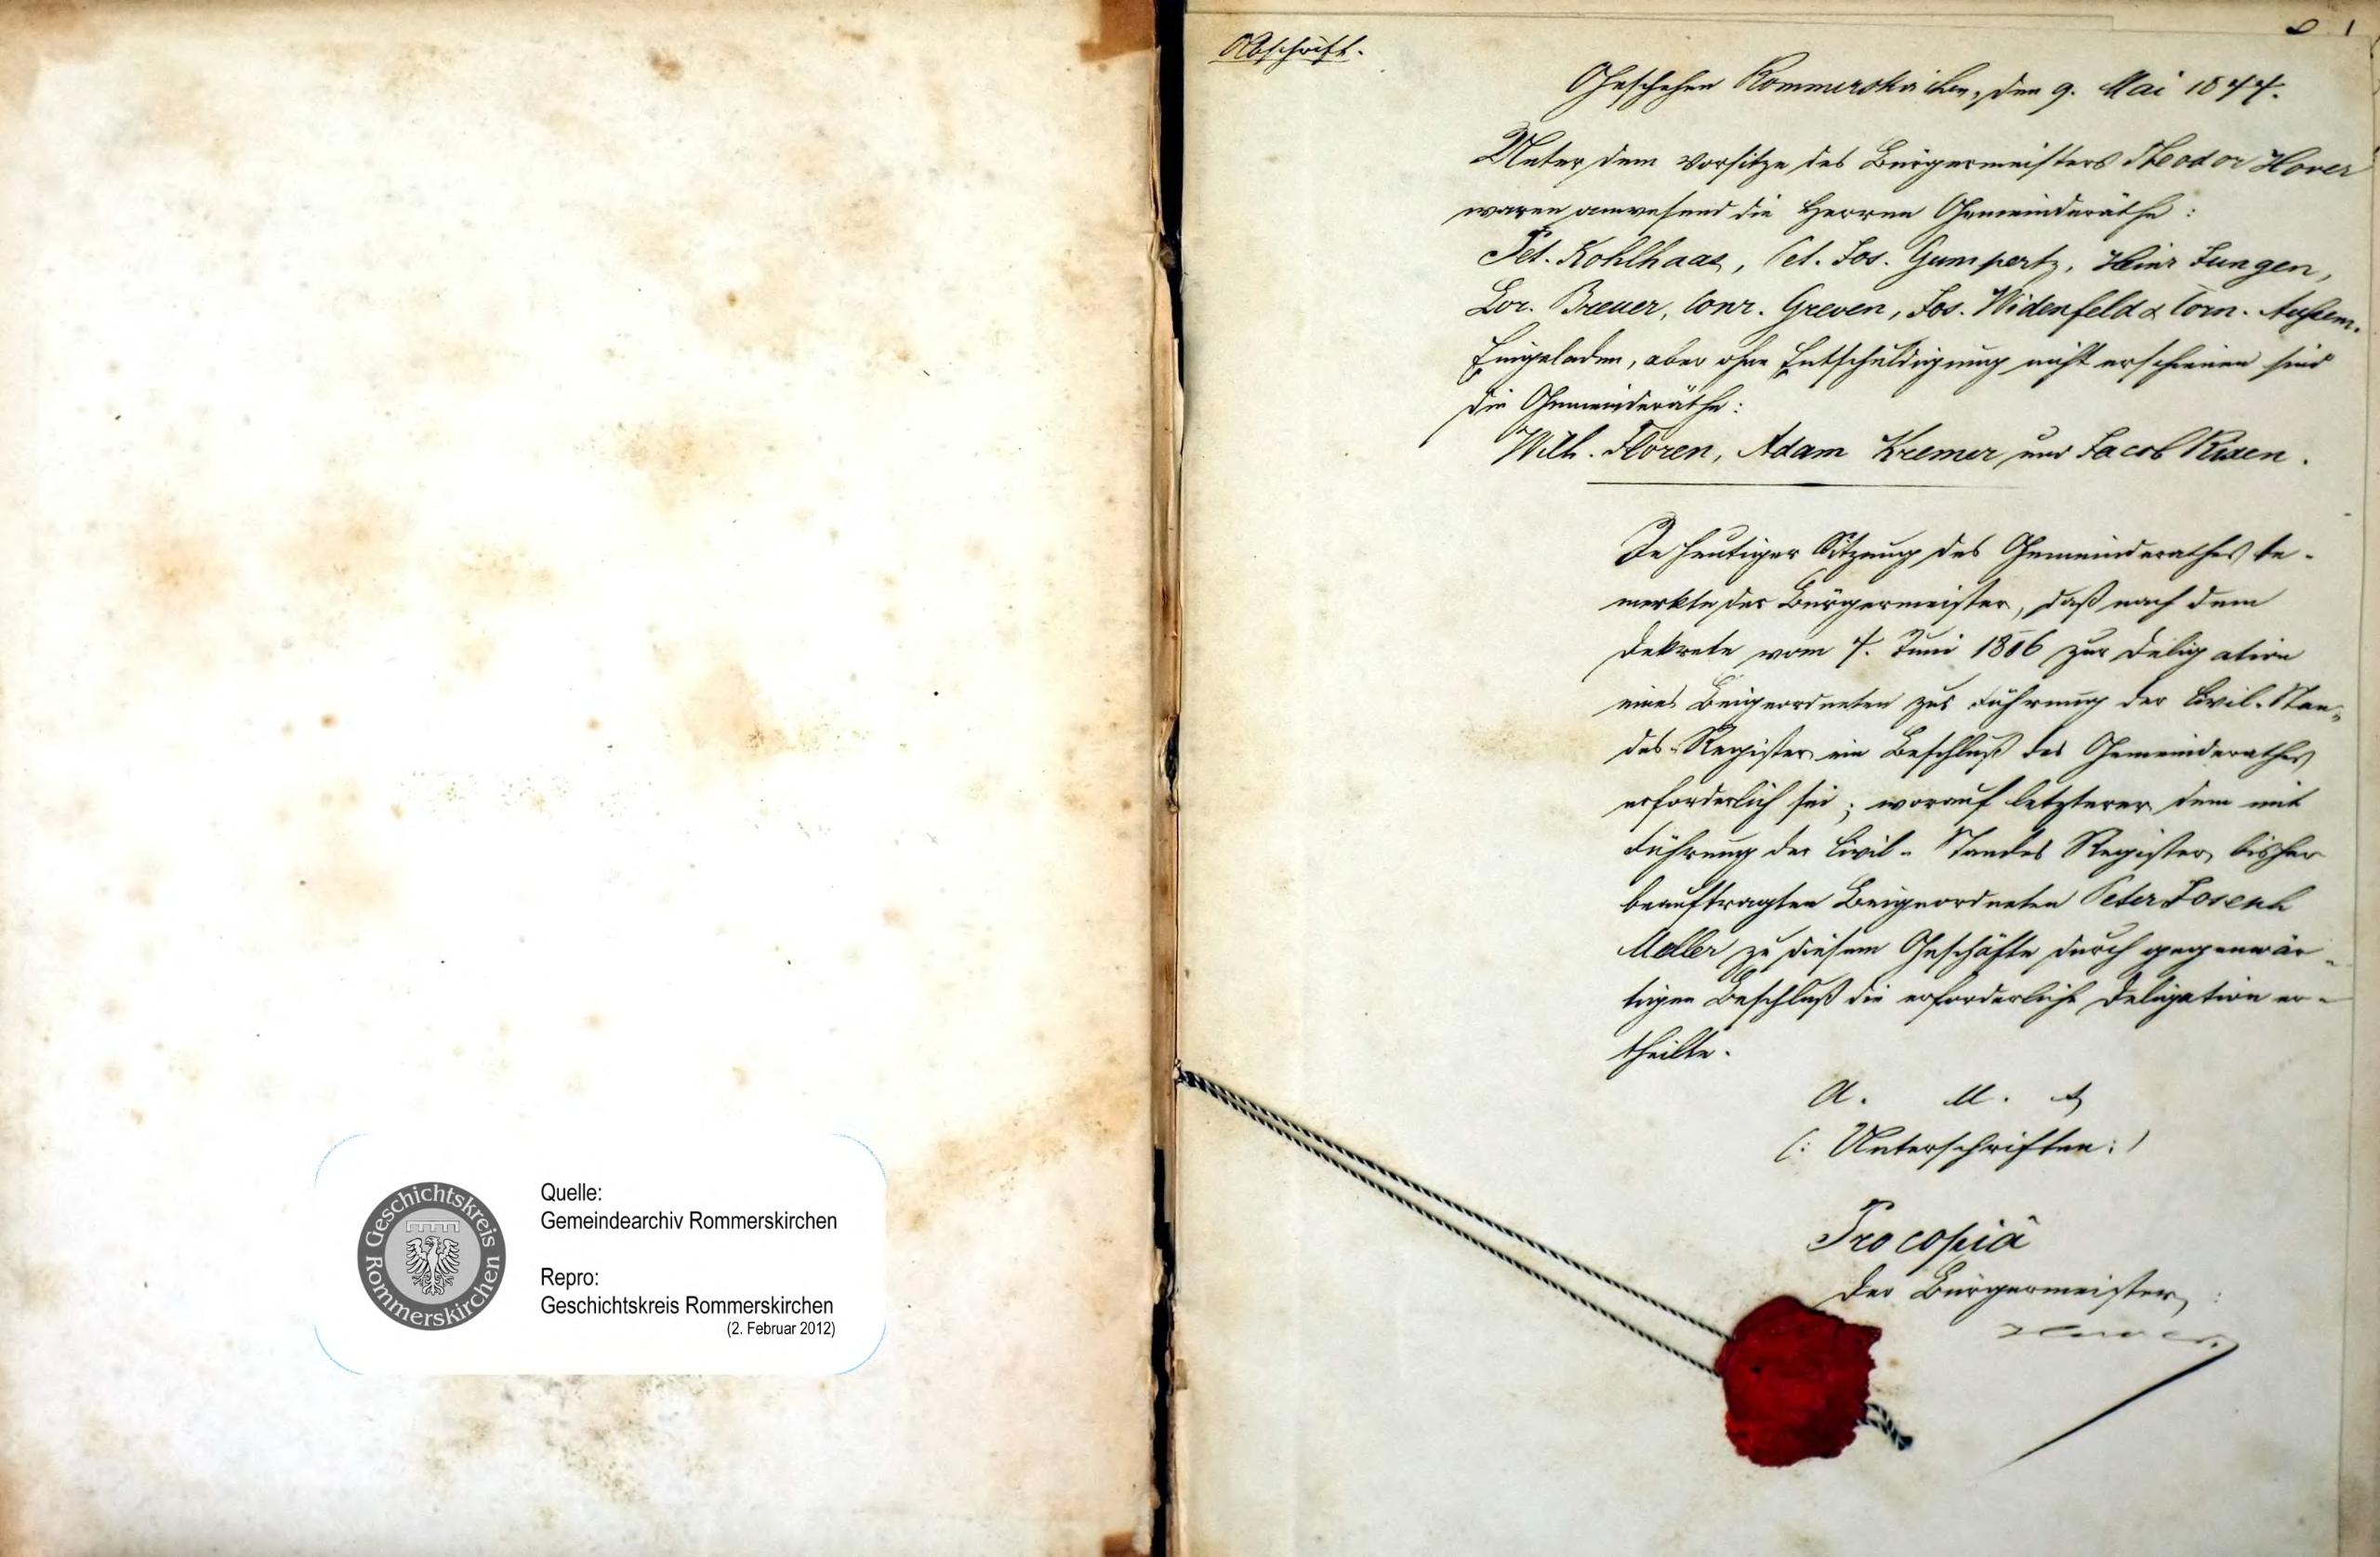 Geschichtskreis Rommerskirchen
Quelle:
Gemeindearchiv Rommerskirchen
Repro:
Geschichtskreis Rommerskirchen
(2. Februar 2012)
Abschrift.
Geschehen Rommerskirchen, den 9. Mai 1877.
Unter dem Vorsitze des Bürgermeisters Theodor Hover
waren anwesend die Herren Gemeinderäthe:
Pet. Kohlhaas, Pet. Jos. Gumpertz, Heinr Jungen,
Lor. Breuer, Conr. Greven, Jos. Widenfeld & Corn. Außem.
Eingeladen, aber ohne Entschuldigung nicht erschienen sind
die Gemeinderäthe:
Wilh. Floren, Adam Kremer und Jacob
In heutiger Sitzung des Gemeinderathes be-
merkte der Bürgermeister, daß nach dem
Dekrete vom Juni 1806 zur Deligation
eines Beigeordneten zur Führung der Civil-Stan-
des-Register ein Beschluß des Gemeinderathes
erforderlich sei; worauf letzterer dem mit
Führung der Civil-Standes Register bisher
beauftragten Beigeordneten Peter Joseph
zu diesem Geschäfte durch gegenwär-
tigen Beschluß die erforderliche Deligation er-
theilte.
(: Unterschriften :)
Pro copiâ
Der Bürgermeister,
Hover.